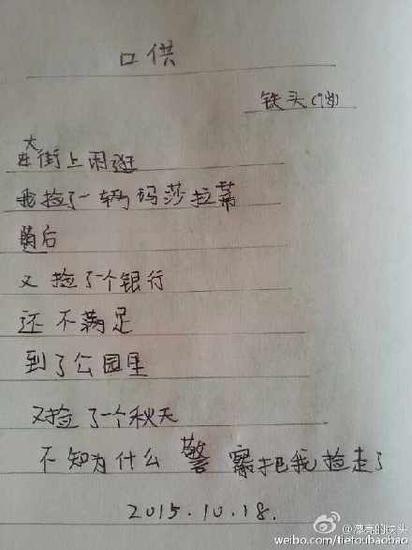 口供
铁头(9岁)
大街上闲逛
我捡了一辆玛莎拉蒂
随后
又捡了个银行
还不满足
到了公园里
又捡了一个秋天
不知为什么警察把我捡走了
2015.10.18.
@漂亮的铁头
weibo.com/tietoubaobao